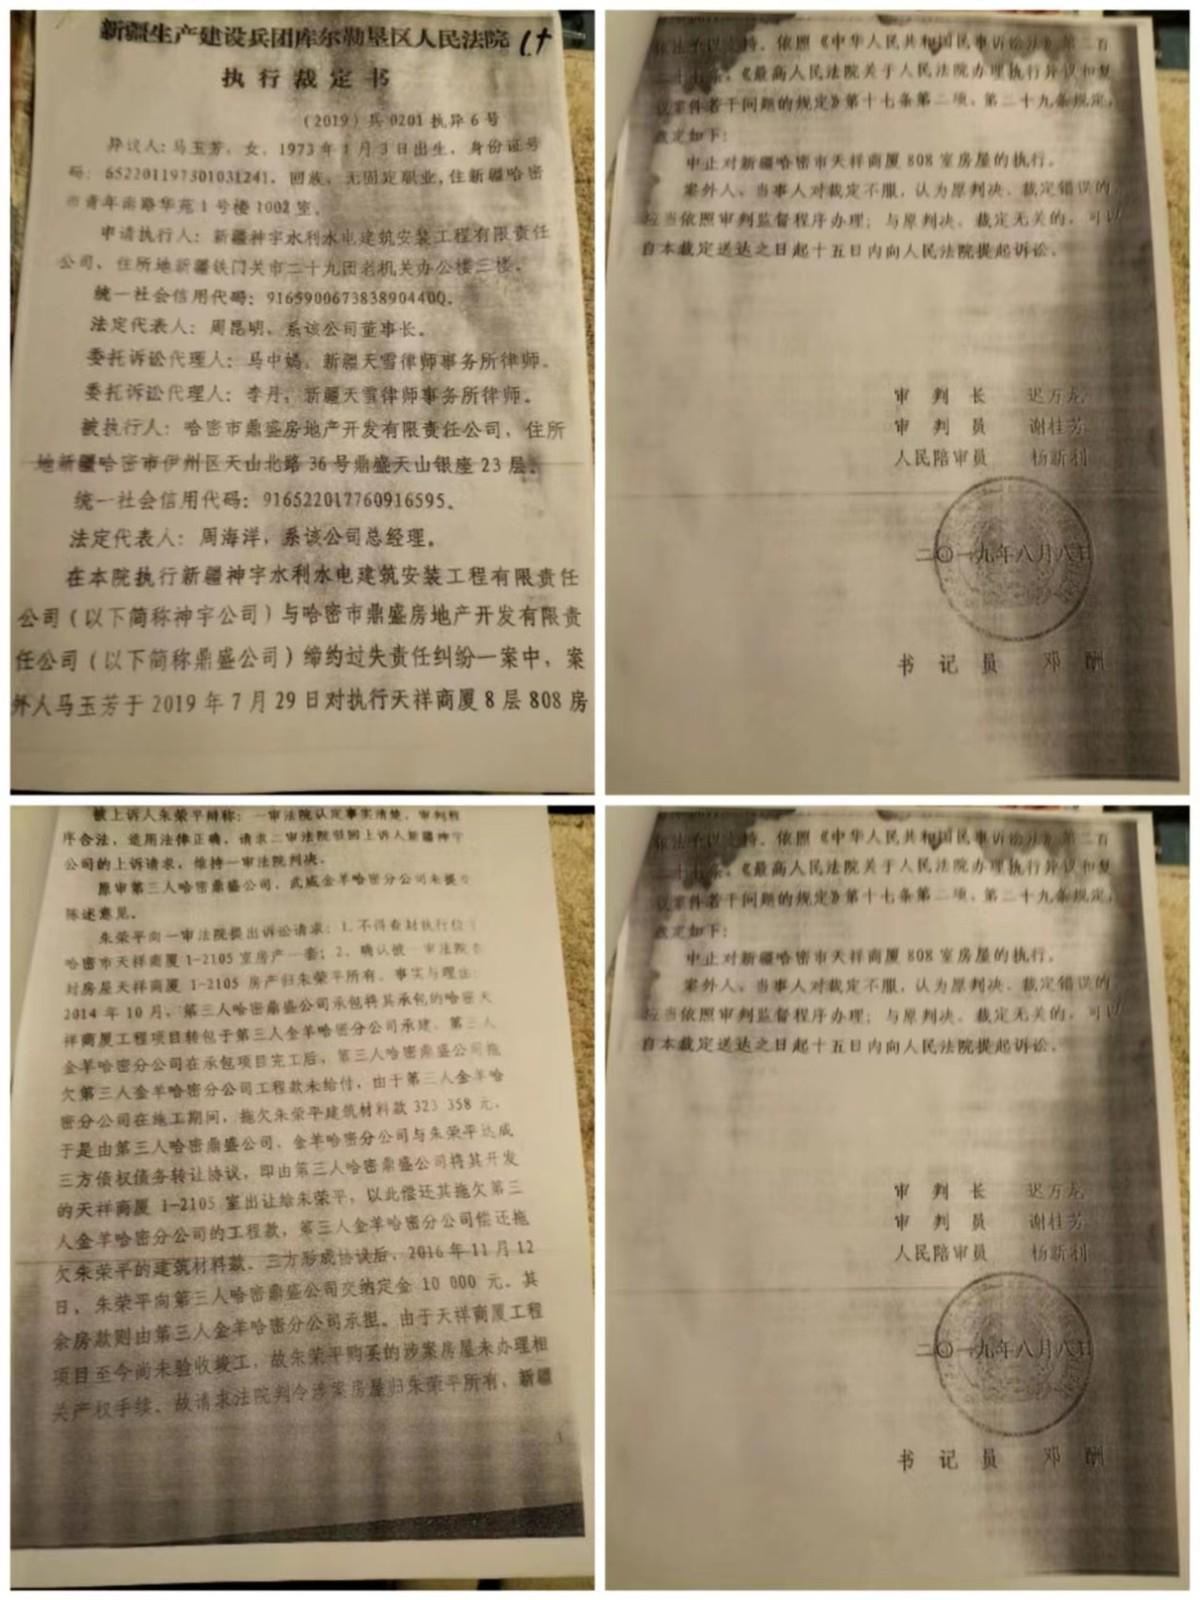 新疆生产建设兵团库尔勒垦区人民法院
执行裁定书
（2019）兵0201执异6号
异议人：马玉芳，女，1973年1月3日出生，身份证号
码：652201197301031241，回族，无固定职业，住新疆哈密
市青年南路华苑1号楼1002室。
申请执行人：新疆神宇水利水电建筑安装工程有限责任
公司，住所地新疆铁门关市二十九团老机关办公楼三楼。
统一社会信用代码：916590067383890440Q。
法定代表人：周昆明，系该公司董事长。
委托诉讼代理人：马中嫣，新疆天雪律师事务所律师。
委托诉讼代理人：李丹，新疆天雪律师事务所律师。
被执行人：哈密市鼎盛房地产开发有限责任公司，住所
地新疆哈密市伊州区天山北路36号鼎盛天山银座23层。
统一社会信用代码：916522017760916595。
法定代表人：周海洋，系该公司总经理。
在本院执行新疆神宇水利水电建筑安装工程有限责任
公司（以下简称神宇公司）与哈密市鼎盛房地产开发有限责
任公司（以下简称鼎盛公司）缔约过失责任纠纷一案中，案
外人马玉芳于2019年7月29日对执行天祥商厦8层808房
依法予以支持。依照《中华人民共和国民事诉讼法》第二百
二十七条、《最高人民法院关于人民法院办理执行异议和复
议案件若干问题的规定》第十七条第二项、第二十九条规定，
裁定如下：
中止对新疆哈密市天祥商厦808室房屋的执行。
案外人、当事人对裁定不服，认为原判决、裁定错误的，
应当依照审判监督程序办理；与原判决、裁定无关的，可以
自本裁定送达之日起十五日内向人民法院提起诉讼。
审判长 迟万龙
审判员 谢桂芳
人民陪审员 杨新利
二〇一九年八月八日
书记员 邓
被上诉人朱荣平辩称：一审法院认定事实清楚，审判程
序合法，适用法律正确，请求二审法院驳回上诉人新疆神宇
公司的上诉请求，维持一审法院判决。
原审第三人哈密鼎盛公司、武威金羊哈密分公司未提交
陈述意见。
朱荣平向一审法院提出诉讼请求：1.不得查封执行位
哈密市天祥商厦1-2105室房产一套；2、确认被一审法院查
封房屋天祥商厦1-2105房产归朱荣平所有。事实与理由：
2014年10月，第三人哈密鼎盛公司承包将其承包的哈密天
祥商厦工程项目转包于第三人金羊哈密分公司承建，第三人
金羊哈密分公司在承包项目完工后，第三人哈密鼎盛公司拖
欠第三人金羊哈密分公司工程款未给付，由于第三人金羊哈
密分公司在施工期间，拖欠朱荣平建筑材料款323 358元，
于是由第三人哈密鼎盛公司、金羊哈密分公司与朱荣平达成
三方债权债务转让协议，即由第三人哈密鼎盛公司将其开发
的天祥商厦1-2105室出让给朱荣平，以此偿还其拖欠第三
人金羊哈密分公司的工程款，第三人金羊哈密分公司偿还拖
欠朱荣平的建筑材料款。三方形成协议后，2016年11月12
日，朱荣平向第三人哈密鼎盛公司交纳定金10 000元，其
余房款则由第三人金羊哈密分公司承担。由于天祥商厦工程
项目至今尚未验收竣工，故朱荣平购买的涉案房屋未办理相
关产权手续。故请求法院判令涉案房屋归朱荣平所有，新疆
1
依法予以支持。依照《中华人民共和国民事诉讼法》第二百
二十七条、《最高人民法院关于人民法院办理执行异议和复
议案件若干问题的规定》第十七条第二项、第二十九条规定，
裁定如下：
中止对新疆哈密市天祥商厦808室房屋的执行。
案外人、当事人对裁定不服，认为原判决、裁定错误的，
应当依照审判监督程序办理；与原判决、裁定无关的，可以
自本裁定送达之日起十五日内向人民法院提起诉讼。
审判长 迟万龙
审判员 谢桂芳
人民陪审员 杨新利
二〇一九年八月八日
书记员 邓